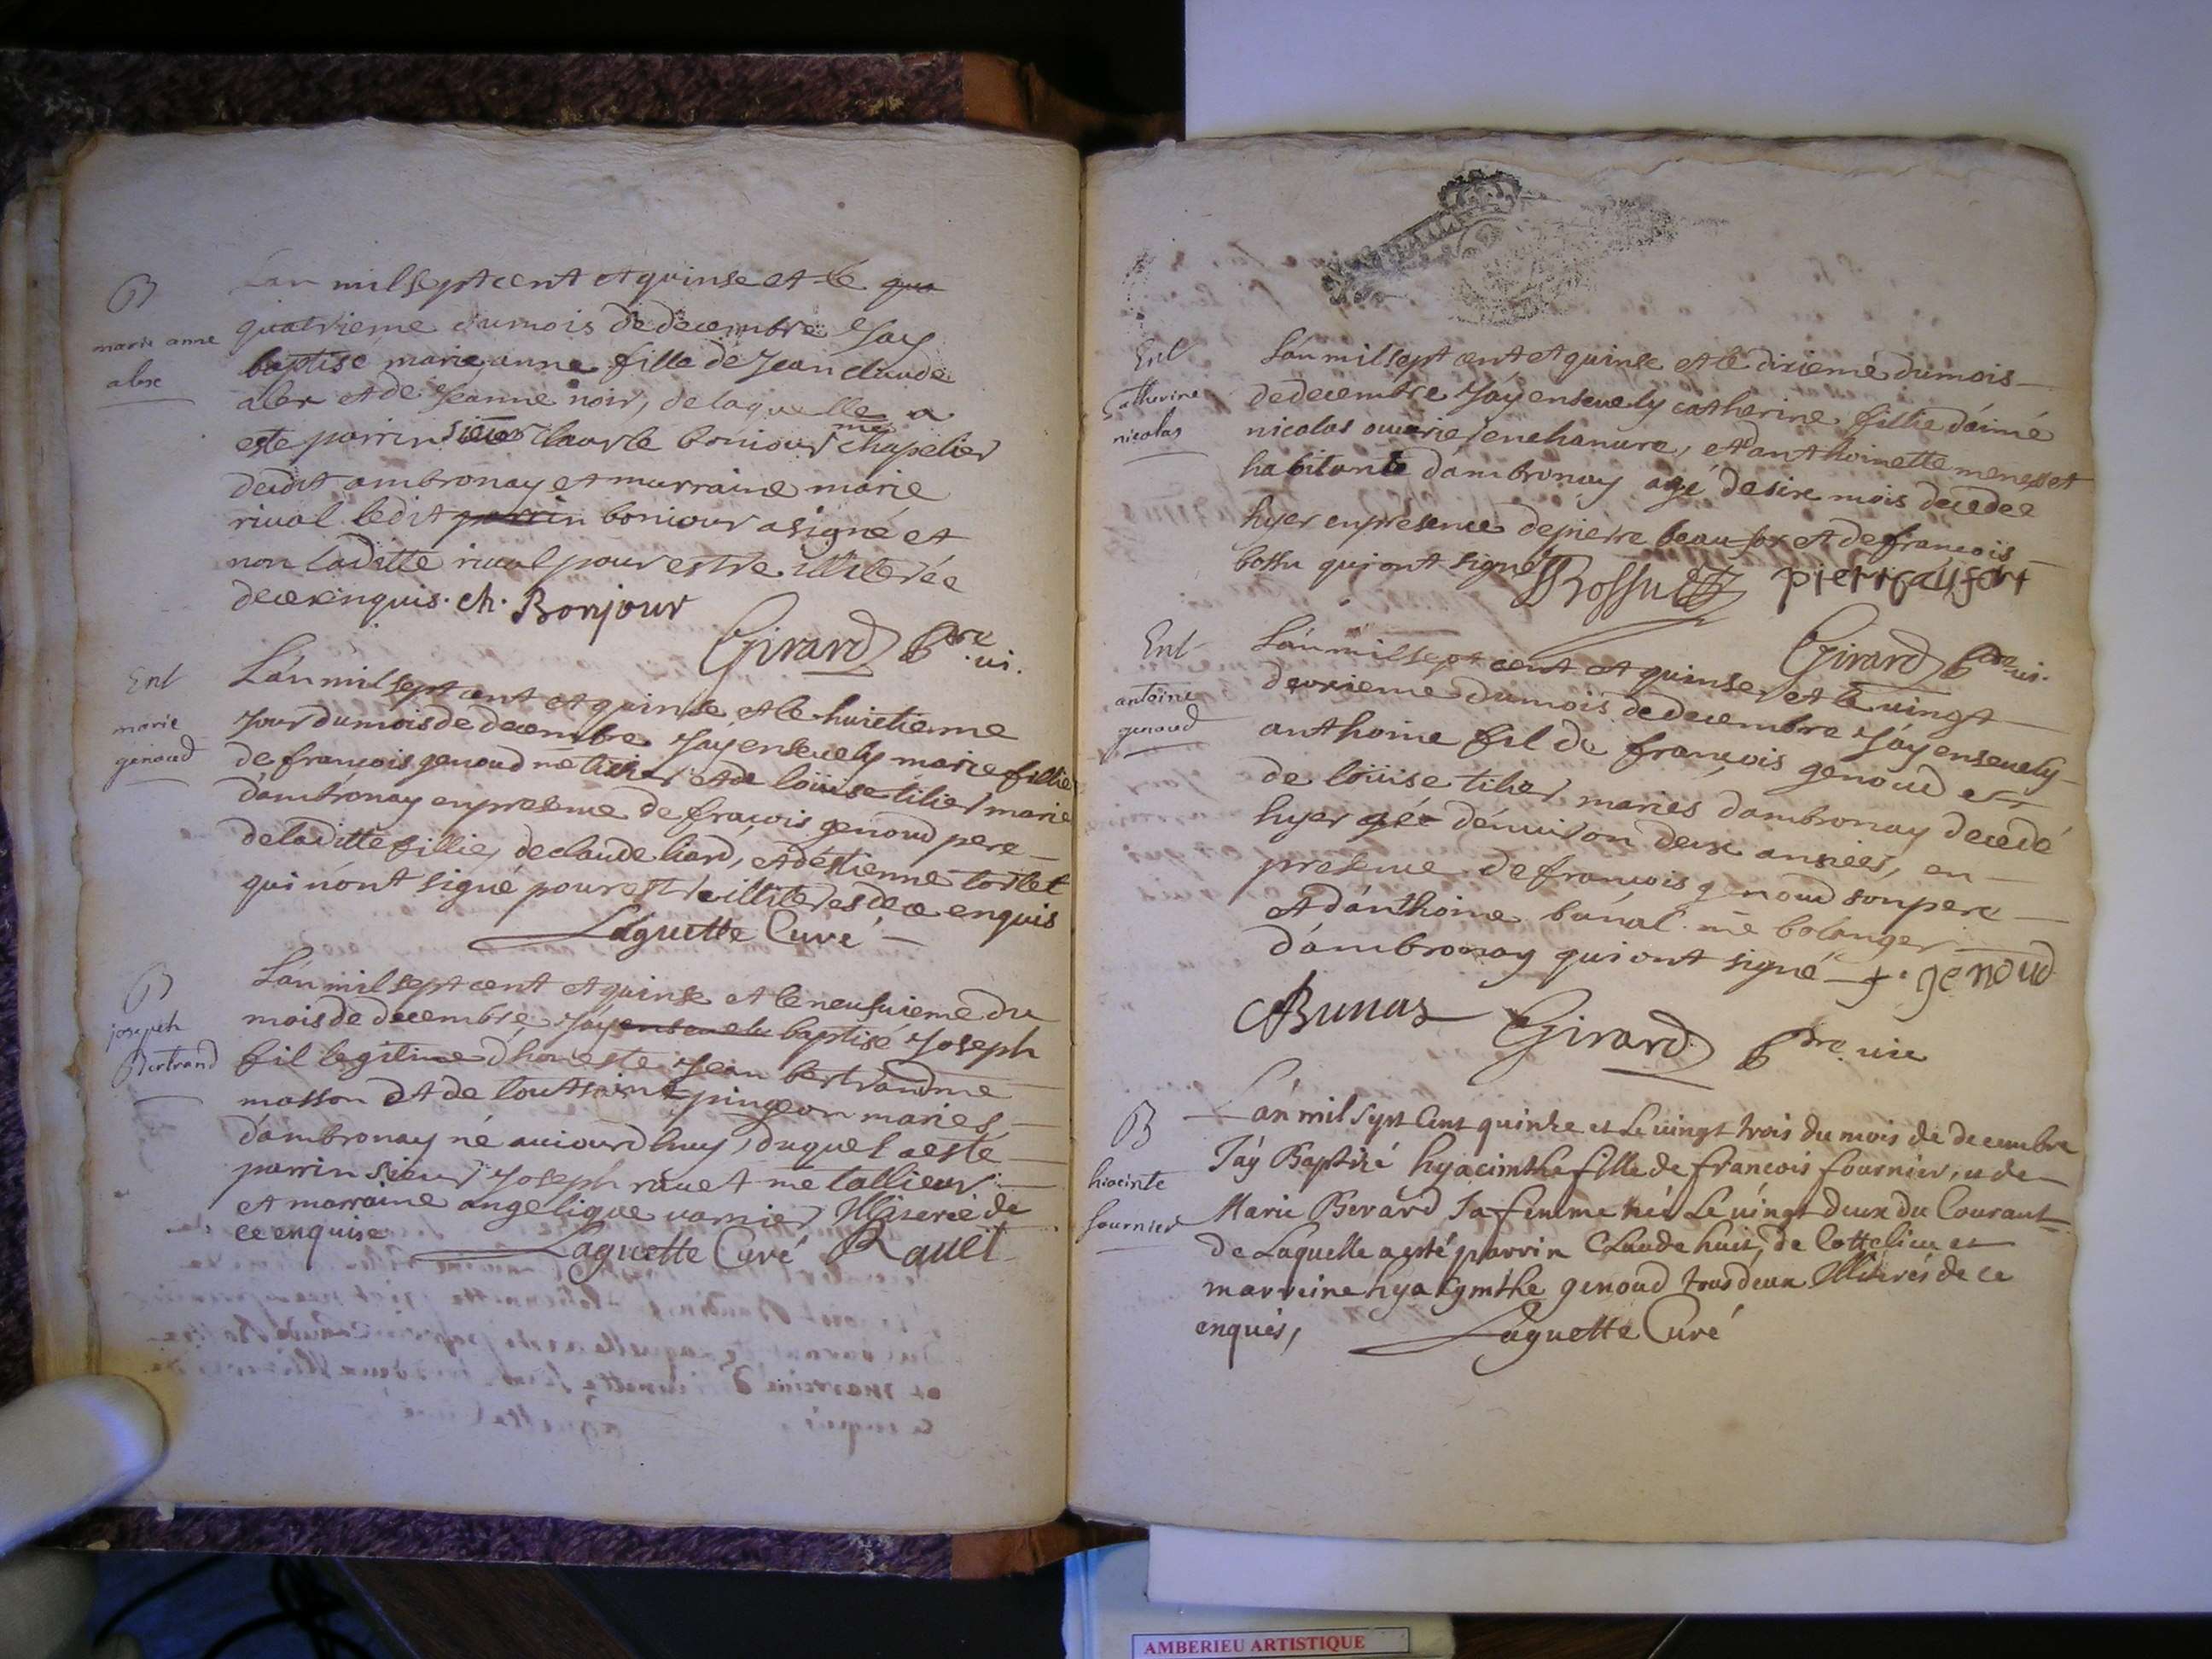 B
marie anne
alex
Lan mil sept cent et quinse et le qua
quatrieme du mois de decembre Jay
baptise marie anne fille de Jean claude
alex et de Jeanne noir, de laquelle a
este parrin sieur claude boniour me chapelier
dudit ambronay et marraine marie
riual ledit parrin boniour a signé et
non ladite riual pour estre illiterée
de ce enquis. ch. Bonjour
Girard pbre vi.
Ent
marie
genoud
Lán mil sept cent et quinse et le huietieme
Jour du mois de decembre Jáy enseuely marie fillie
de francois genoud me tixier et de loüise tilier marié
dámbronay en presence de francois genoud pere
de laditte fillie, de claude liard, et déstienne torlet
qui nónt signé pour estre illiteres de ce enquis
Laguette Curé
B
joseph
Bertrand
Lán mil sept cent et quinse et le neufuieme du
mois de decembre Jáy enseuely baptisé Joseph
fil legitime dhoneste Jean bertrand me
masson et de toutsainte pingeon mariés
dámbronay né auiourdhuy, duquel a esté
parrin sieur Joseph rauet me tallieur
et marraine angelique varnier Illiserée de
ce enquise
Laguette Curé Rauet
Ent
Catherine
nicolas
Lán mil sept cent et quinse et le dixiemé du mois
de decembre Jáy enseuely catherine fillie dáimé
nicolas ouurier en chanure, et danthoinette menesset
habitants dámbronay agé de six mois decedeé
hyer en presence de pierre beaufort et de francois
bossu qui ont signé
Bossuet pierr caufort
Girard pbre vi.
Ent
antoine
genoud
Lán mil sept cent et quinse et le uingt
deuxieme du mois de decembre Jáy enseuely
anthoine fil de francois genoud et
de loüise tilier mariés dambronay decedé
hyer agé dénuiron deux anneés, en
presence de francois genoud son pere
et dánthoine bunal me bolanger
dámbronay qui ont signé f. genoud
ABunaz Girard pbre vic
B
hiacinte
fournier
Lán mil sept Cent quinze et Le uingt trois du mois de decembre
Jáy Baptizé hyacinthe fille de francois fournier, et de
Marie Berard Sa femme neé Le uingt deux du Courant
de Laquelle a esté parrin Claude huit, de Cottelieu et
marreine hyacynthe genoud tous deux Illiterés de ce
enquis,
Laguette Curé
AMBERIEU ARTISTIQUE